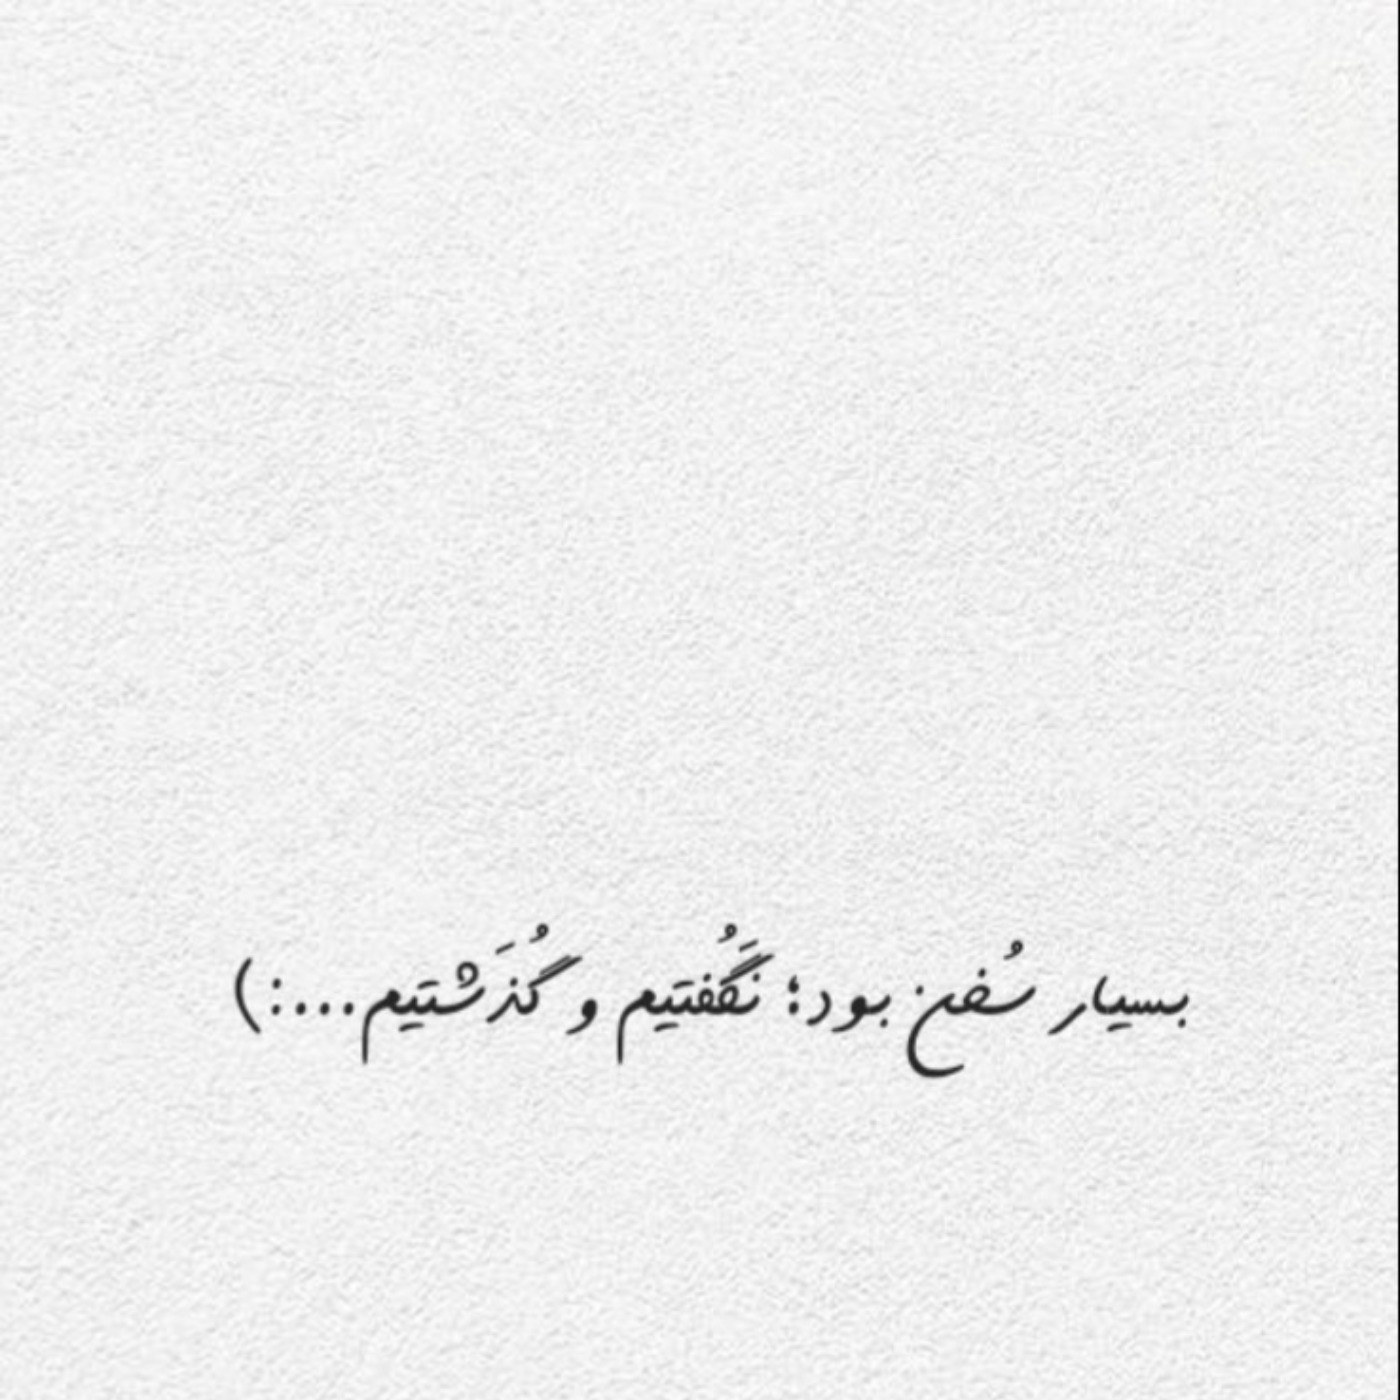 بسیار سُخن بود؛ نَگُفتیم و گُذَشتیم...:)